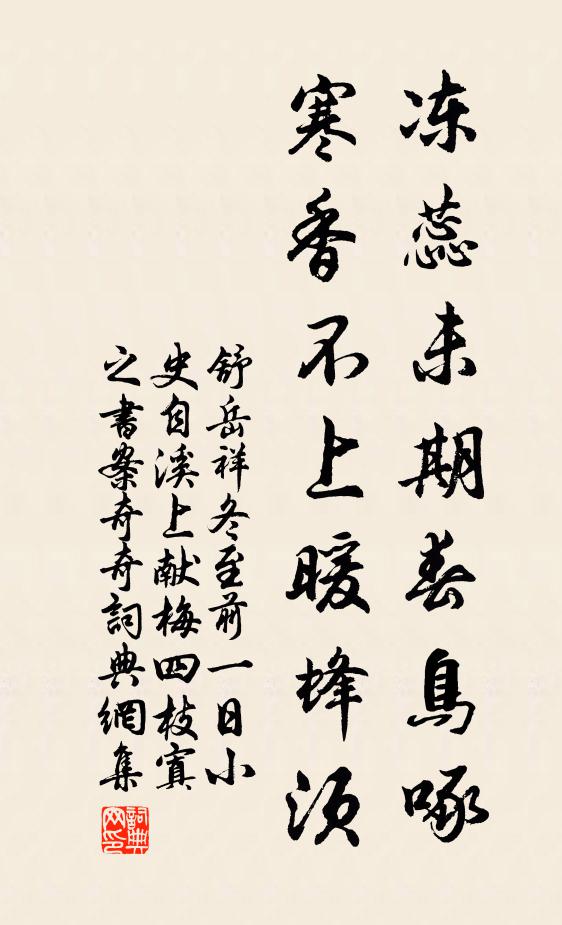 冻蕊未期春鳥啄
寒香不上暖蜂须
舒岳祥冬至前一日小
史自溪上献梅四枝寘
之書案奇奇詞典網集
詞典网印